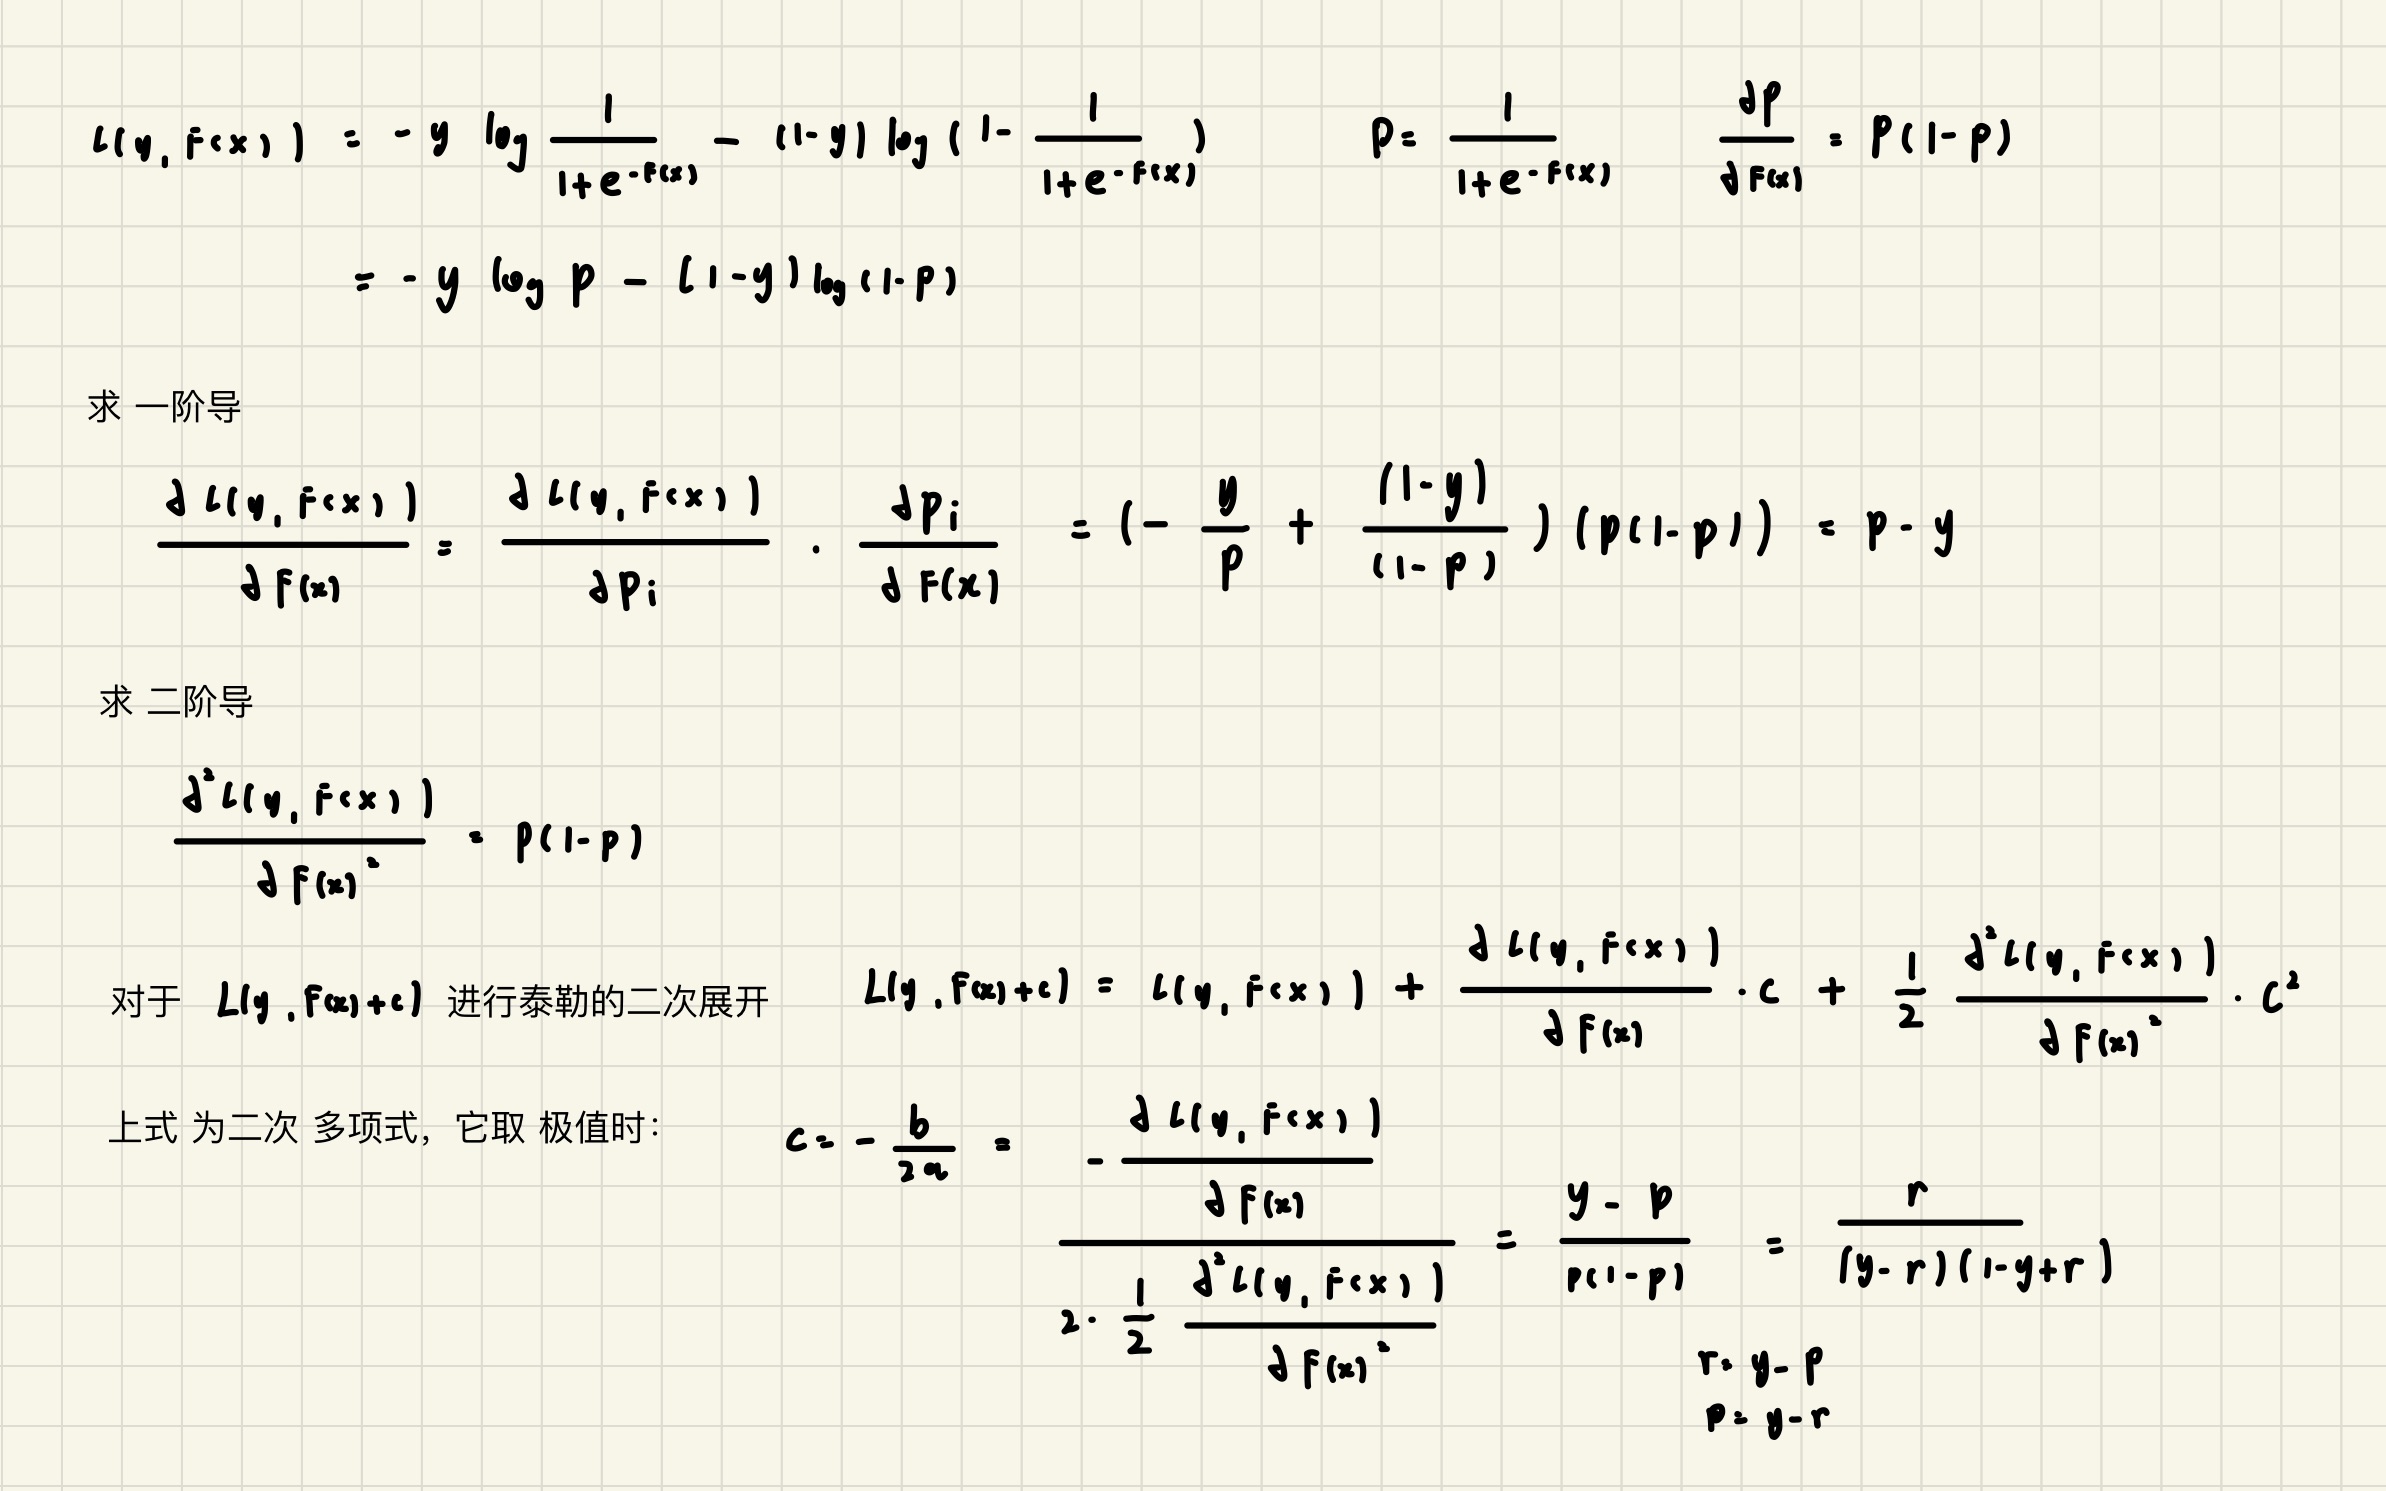 L(y, F(x)) = - y log 1/(1+e^{-F(x)}) - (1-y) log(1- 1/(1+e^{-F(x)})) P= 1/(1+e^{-F(x)}) ∂P/∂F(x) = P(1-P)
= - y log P - (1-y) log(1-P)
求 一阶导
∂L(y, F(x))/∂F(x) = ∂L(y, F(x))/∂Pi · ∂Pi/∂F(x) = (- y/P + (1-y)/(1-P)) (P(1-P)) = P - y
求 二阶导
∂²L(y, F(x))/∂F(x)² = P(1-P)
对于 L(y, F(x)+c) 进行泰勒的二次展开 L(y, F(x)+c) = L(y, F(x)) + ∂L(y, F(x))/∂F(x) · c + 1/2 ∂²L(y, F(x))/∂F(x)² · c²
上式 为二次 多项式，它取 极值时： c = - b/2a = (- ∂L(y, F(x))/∂F(x))/(2 · 1/2 ∂²L(y, F(x))/∂F(x)²) = (y - P)/(P(1-P)) = r/((y-r)(1-y+r))
r = y - P
P = y - r